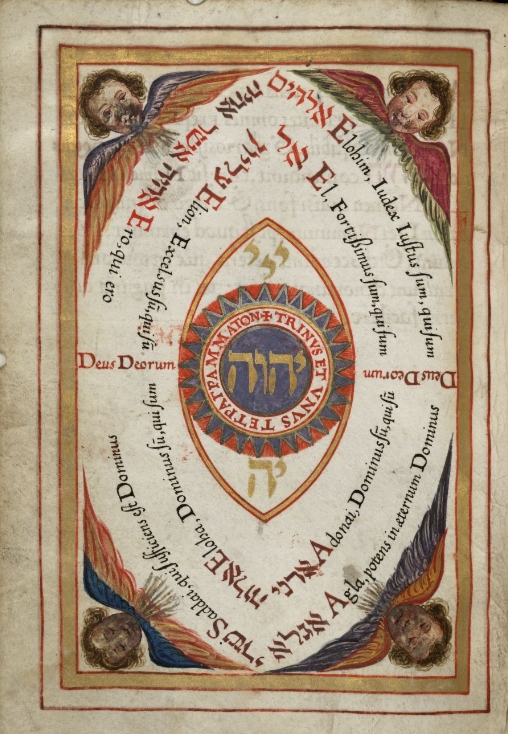 אלהים Elohim, Iudex Iustus sum, qui sum
אל El, Fortißimus sum, qui sum
אהיה אשר אהיה Ero, qui ero
עליון Elion, Excelsus sū, qui sū
Deus Deorum
Deus Deorum
יי
TRINVS ET VNVS TETPAΓPAMMATON ✠
יהוה
יה
Eloha, Dominus
Adonai, Dominus sū, qui sū
Saddai, qui sufficiens est Dominus
Agla, potens in æternum Dominus